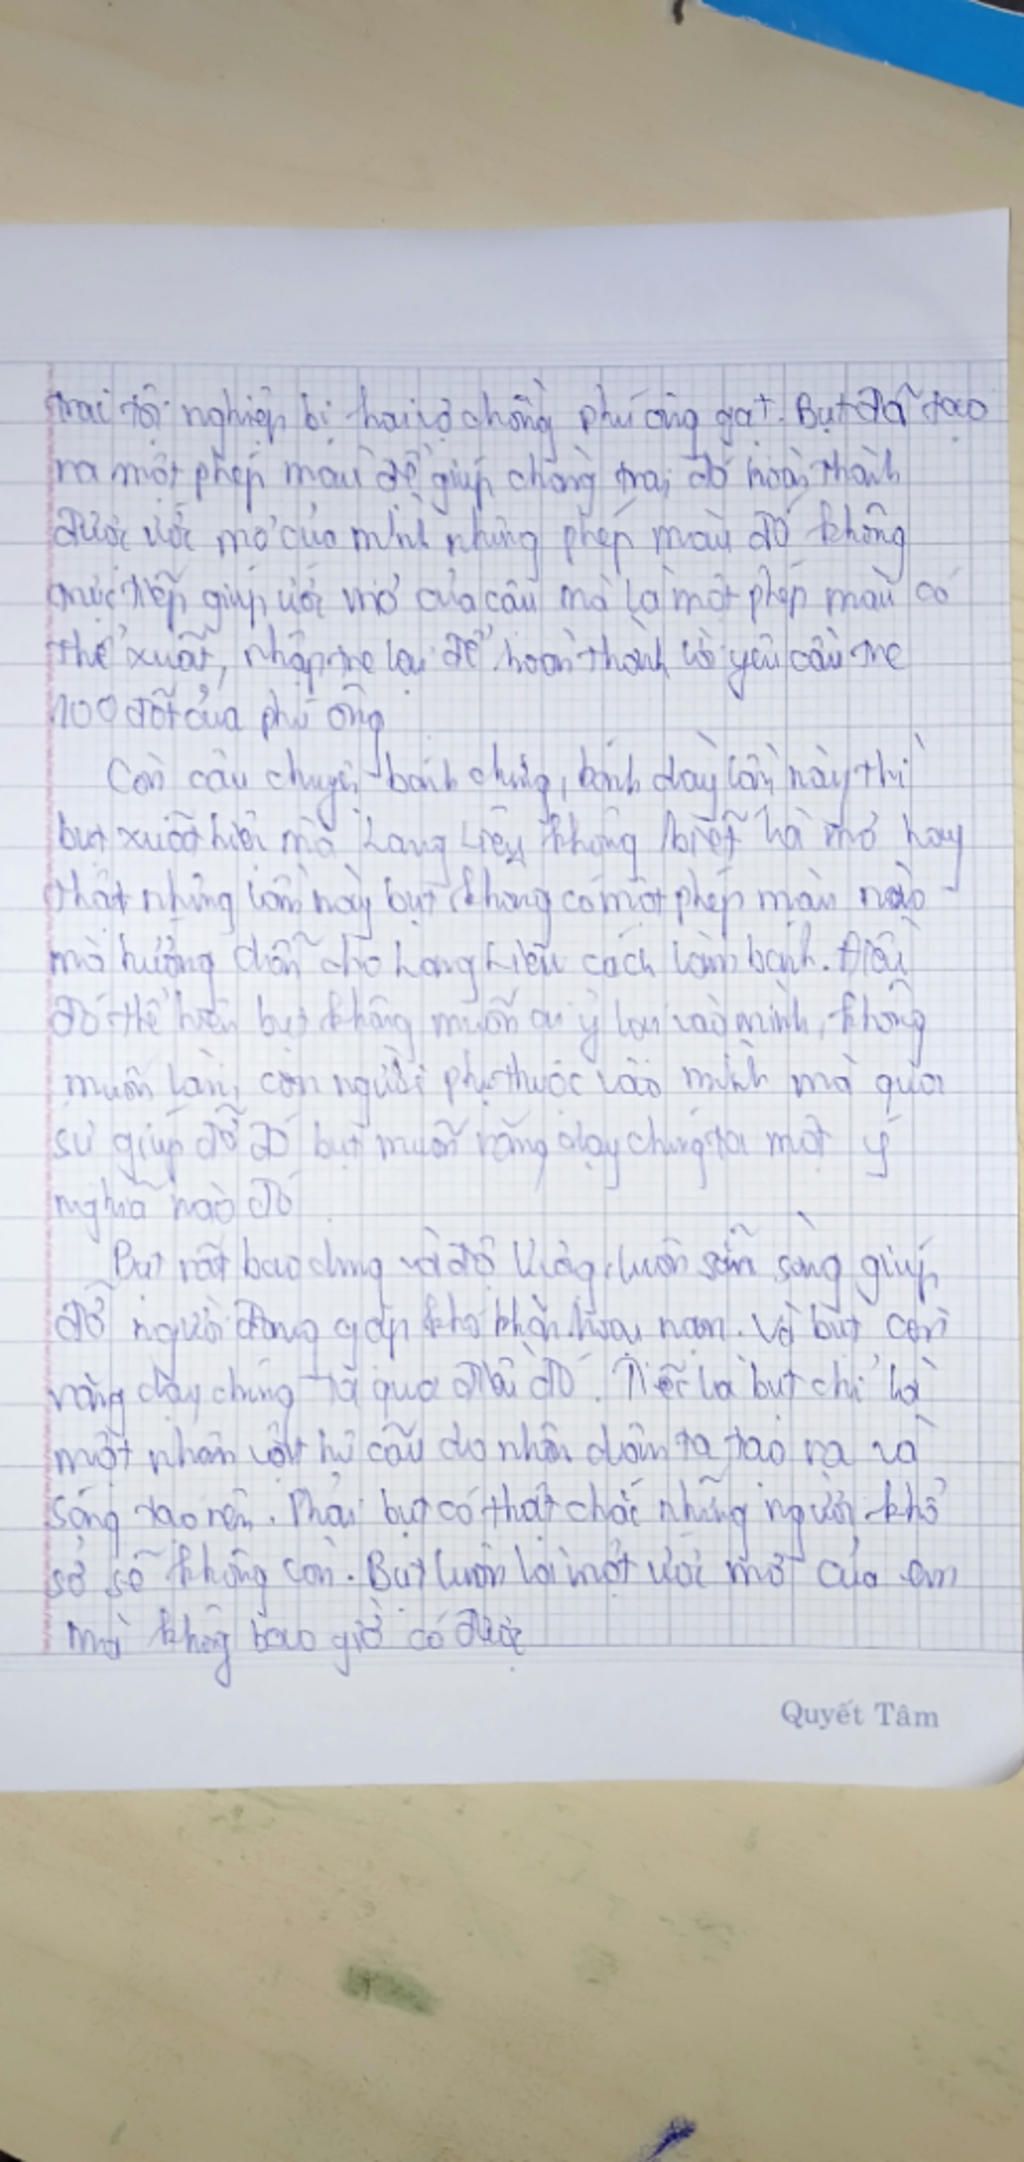 trai tội nghiệp bị hai vợ chồng phú ông gạt. Bụt đã tạo
ra một phép màu để giúp chàng trai đó hoàn thành
được ước mơ của mình nhưng phép màu đó không
trực tiếp giúp ước mơ của cậu mà là một phép màu có
thể xuất, nhập tre lại để hoàn thành yêu cầu tre
100 đốt của phú ông
Còn câu chuyện bánh chưng, bánh dày lần này thì
bụt xuất hiện mà Lang Liêu không biết là mơ hay
thật nhưng lần này bụt không có một phép màu nào
mà hướng dẫn cho Lang Liêu cách làm bánh. Điều
đó thể hiện bụt không muốn ai ỷ lại vào mình, không
muốn làm con người phụ thuộc vào mình mà qua
sự giúp đỡ đó bụt muốn răng dạy chúng ta một ý
nghĩa nào đó
Bụt rất bao dung và độ lượng, luôn sẵn sàng giúp
đỡ người đang gặp khó khăn hoạn nạn. Và bụt còn
răng dạy chúng ta qua điều đó. Tiếc là bụt chỉ là
một nhân vật hư cấu do nhân dân ta tạo ra và
sáng tạo nên. Phải bụt có thật chắc những người khổ
sở sẽ không còn. Bụt luôn là một ước mơ của em
mà không bao giờ có được
Quyết Tâm